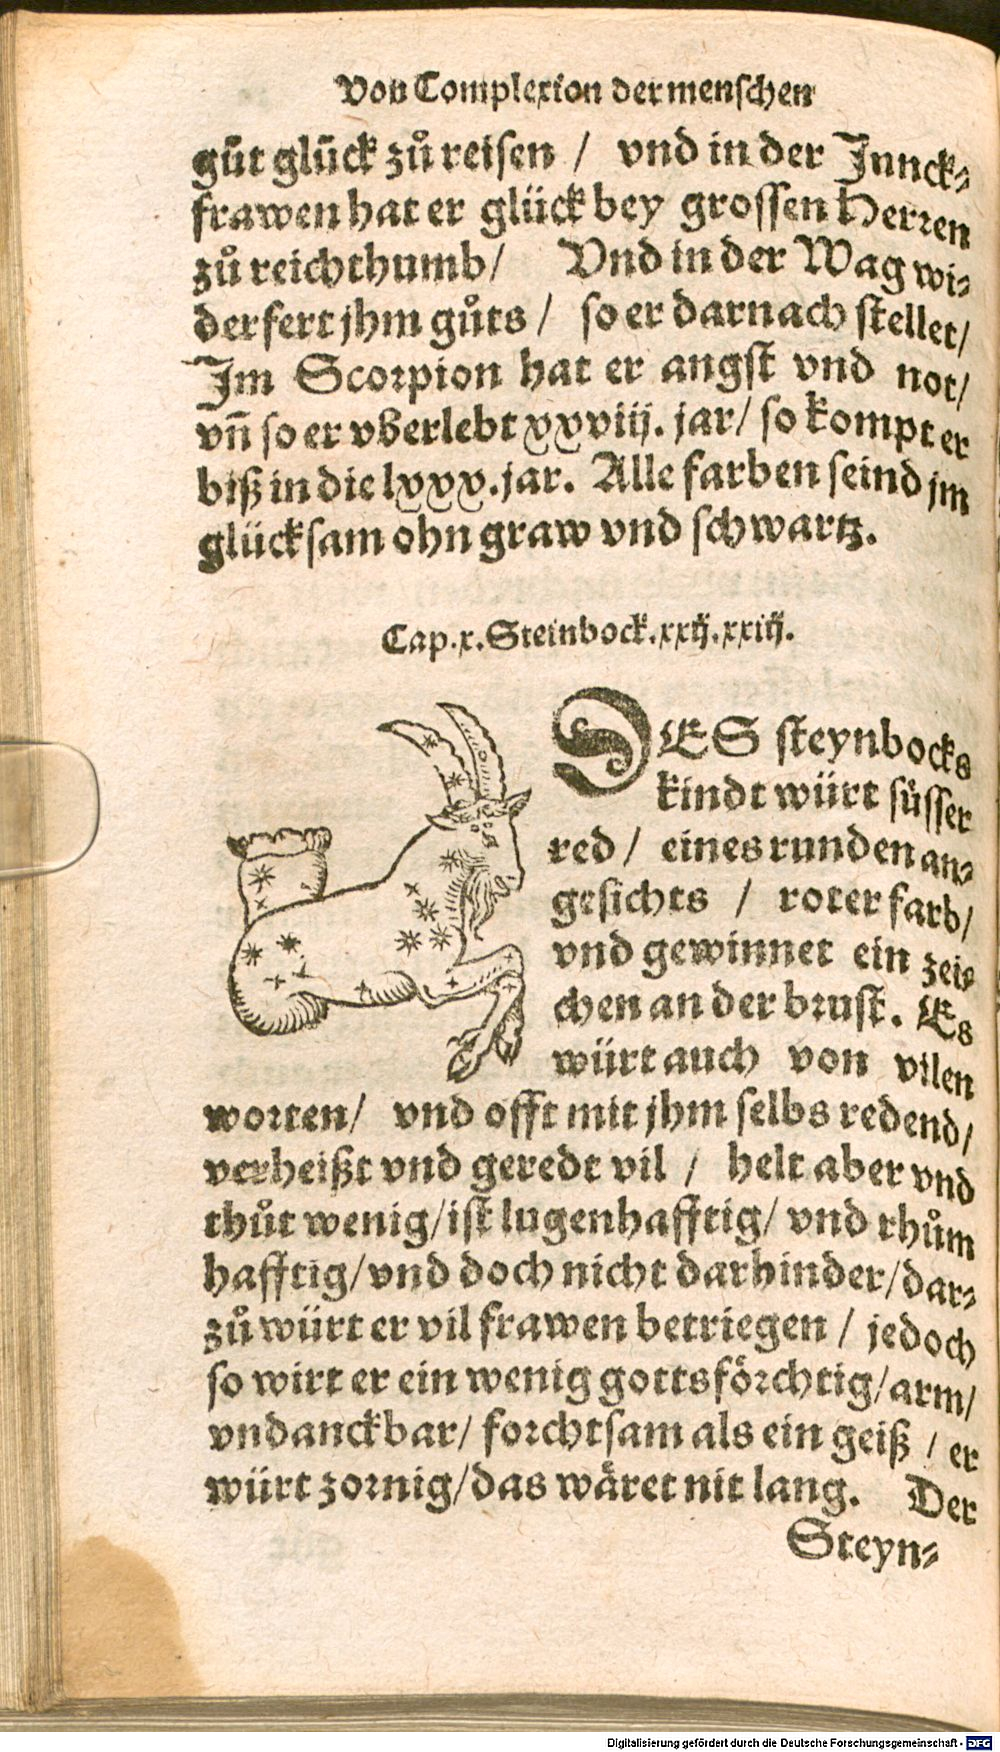 Von Complexion der menschen
gůt glück zů reisen / vnd in der Junck-
frawen hat er glück bey grossen Herren
zů reichthumb / Vnd in der Wag wi-
derfert jhm gůts / so er darnach stellet /
Im Scorpion hat er angst vnd not /
vñ so er vberlebt xxviij. jar / so kompt er
biß in die lxxx. jar. Alle farben seind jm
glücksam ohn graw vnd schwartz.
Cap. x. Steinbock. xxij. xxiij.
DES steynbocks
kindt würt süsser
red / eines runden an-
gesichts / roter farb /
vnd gewinnet ein zei-
chen an der brust. Es
würt auch von vilen
worten / vnd offt mit jhm selbs redend /
verheißt vnd geredt vil / helt aber vnd
thůt wenig / ist lugenhafftig / vnd rhům
hafftig / vnd doch nicht darhinder / dar-
zů würt er vil frawen betriegen / jedoch
so wirt er ein wenig gottsförchtig / arm /
vndanckbar / forchtsam als ein geiß / er
würt zornig / das wäret nit lang. Der
Steyn-
Digitalisierung gefördert durch die Deutsche Forschungsgemeinschaft - DFG